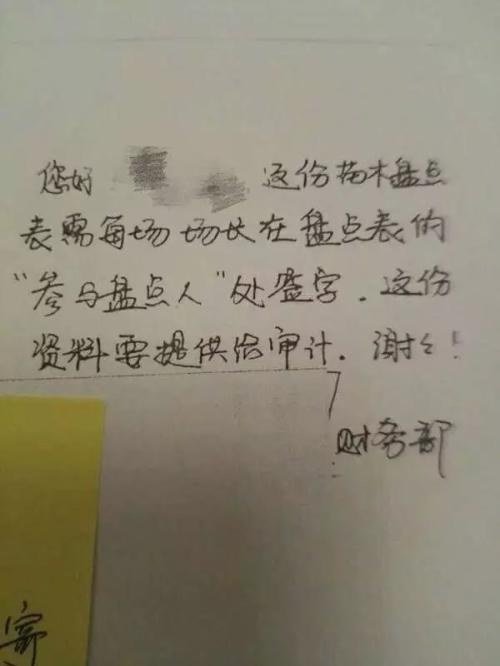 您好 这份苗木盘点
表需每场场长在盘点表的
"参与盘点人"处签字.这份
资料要提供给审计.谢々!
财务部
寄